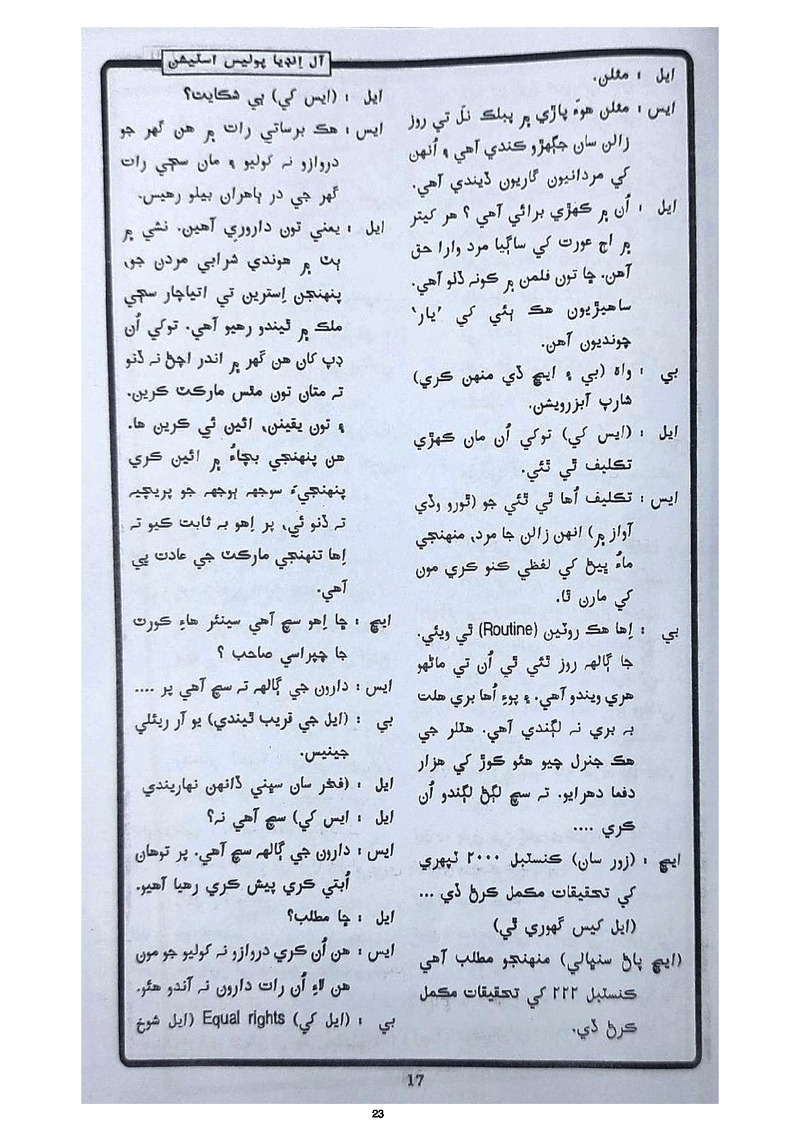 آل اِنڊيا پوليس اسٽيشن
ايل : مثلن.
ايس : مثلن هوءَ پاڙي ۾ پبلڪ نل تي روز
زالن سان جڳهڙو ڪندي آهي ۽ اُنهن
کي مردانيون گاريون ڏيندي آهي.
ايل : اُن ۾ ڪهڙي برائي آهي ؟ هر کيتر
۾ اڄ عورت کي ساڳيا مرد وارا حق
آهن. ڇا تون فلمن ۾ ڪونه ڏٺو آهي.
ساهيڙيون هڪ ٻئي کي ’يار‘
چونديون آهن.
بي : واه (بي ۽ ايڇ ڏي منهن ڪري)
شارپ آبزرويشن.
ايل : (ايس کي) توکي اُن مان ڪهڙي
تڪليف ٿي ٿئي.
ايس : تڪليف اُها ٿي ٿئي جو (ٿورو وڏي
آواز ۾) انهن زالن جا مرد، منهنجي
ماءُ ڀيڻ کي لفظي ڪنو ڪري مون
کي مارن ٿا.
بي : اِها هڪ روٽين (Routine) ٿي ويئي.
جا ڳالهه روز ٿئي ٿي اُن تي ماڻهو
هري ويندو آهي. ۽ پوءِ اُها بري هلت
به بري نه لڳندي آهي. هٽلر جي
هڪ جنرل چيو هئو ڪوڙ کي هزار
دفعا دهرايو. ته سچ لڳڻ لڳندو اُن
ڪري ....
ايڇ : (زور سان) ڪنسٽبل ۲۰۰۰ ٽپهري
کي تحقيقات مڪمل ڪرڻ ڏي ...
(ايل کيس گهوري ٿي)
(ايڇ پاڻ سنڀالي) منهنجو مطلب آهي
ڪنسٽبل ۲۲۲ کي تحقيقات مڪمل
ڪرڻ ڏي.
ايل : (ايس کي) ٻي شڪايت؟
ايس : هڪ برساتي رات ۾ هن گهر جو
دروازو نه کوليو ۽ مان سڄي رات
گهر جي در ٻاهران بيلو رهيس.
ايل : يعني تون داروري آهين. نشي ۾
ٻٽ ۾ هوندي شرابي مردن جو،
پنهنجن اِسترين تي اتياچار سڄي
ملڪ ۾ ٿيندو رهيو آهي. توکي اُن
ڊپ کان هن گهر ۾ اندر اچڻ نه ڏنو
ته متان تون مٿس مارڪٽ ڪرين.
۽ تون يقينن، ائين ئي ڪرين ها.
هن پنهنجي بچاءُ ۾ ائين ڪري
پنهنجيءَ سوجهه ٻوجهه جو پريچيه
ته ڏنو ئي، پر اِهو به ثابت ڪيو ته
اِها تنهنجي مارڪٽ جي عادت پي
آهي.
ايڇ : ڇا اِهو سچ آهي سينئر هاءِ ڪورٽ
جا چپراسي صاحب ؟
ايس : دارون جي ڳالهه ته سچ آهي پر ....
بي : (ايل جي قريب ٿيندي) يو آر ريئلي
جينيس.
ايل : (فخر سان سڀني ڏانهن نهاريندي
ايل : ايس کي) سچ آهي نه؟
ايس : دارون جي ڳالهه سچ آهي. پر توهان
اُبتي ڪري پيش ڪري رهيا آهيو.
ايل : ڇا مطلب؟
ايس : هن اُن ڪري دروازو نه کوليو جو مون
هن لاءِ اُن رات دارون نه آندو هئو.
بي : (ايل کي) Equal rights (ايل شوخ
17
23